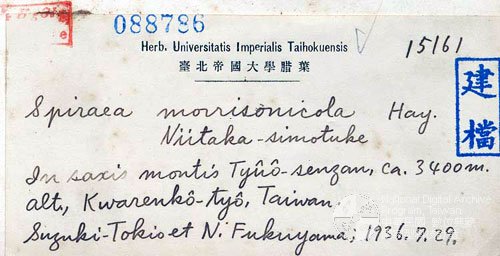 088786
15161
Herb. Universitatis Imperialis Taihokuensis
臺北帝國大學腊葉
建檔
Spiraea morrisonicola Hay.
Niitaka-simotuke
In saxis montis Tyûô-senzan, ca. 3400m.
alt., Kwarenkô-tyô, Taiwan.
Suzuki-Tokio et N. Fukuyama; 1936.7.29.
National Digital Archives
Program, Taiwan